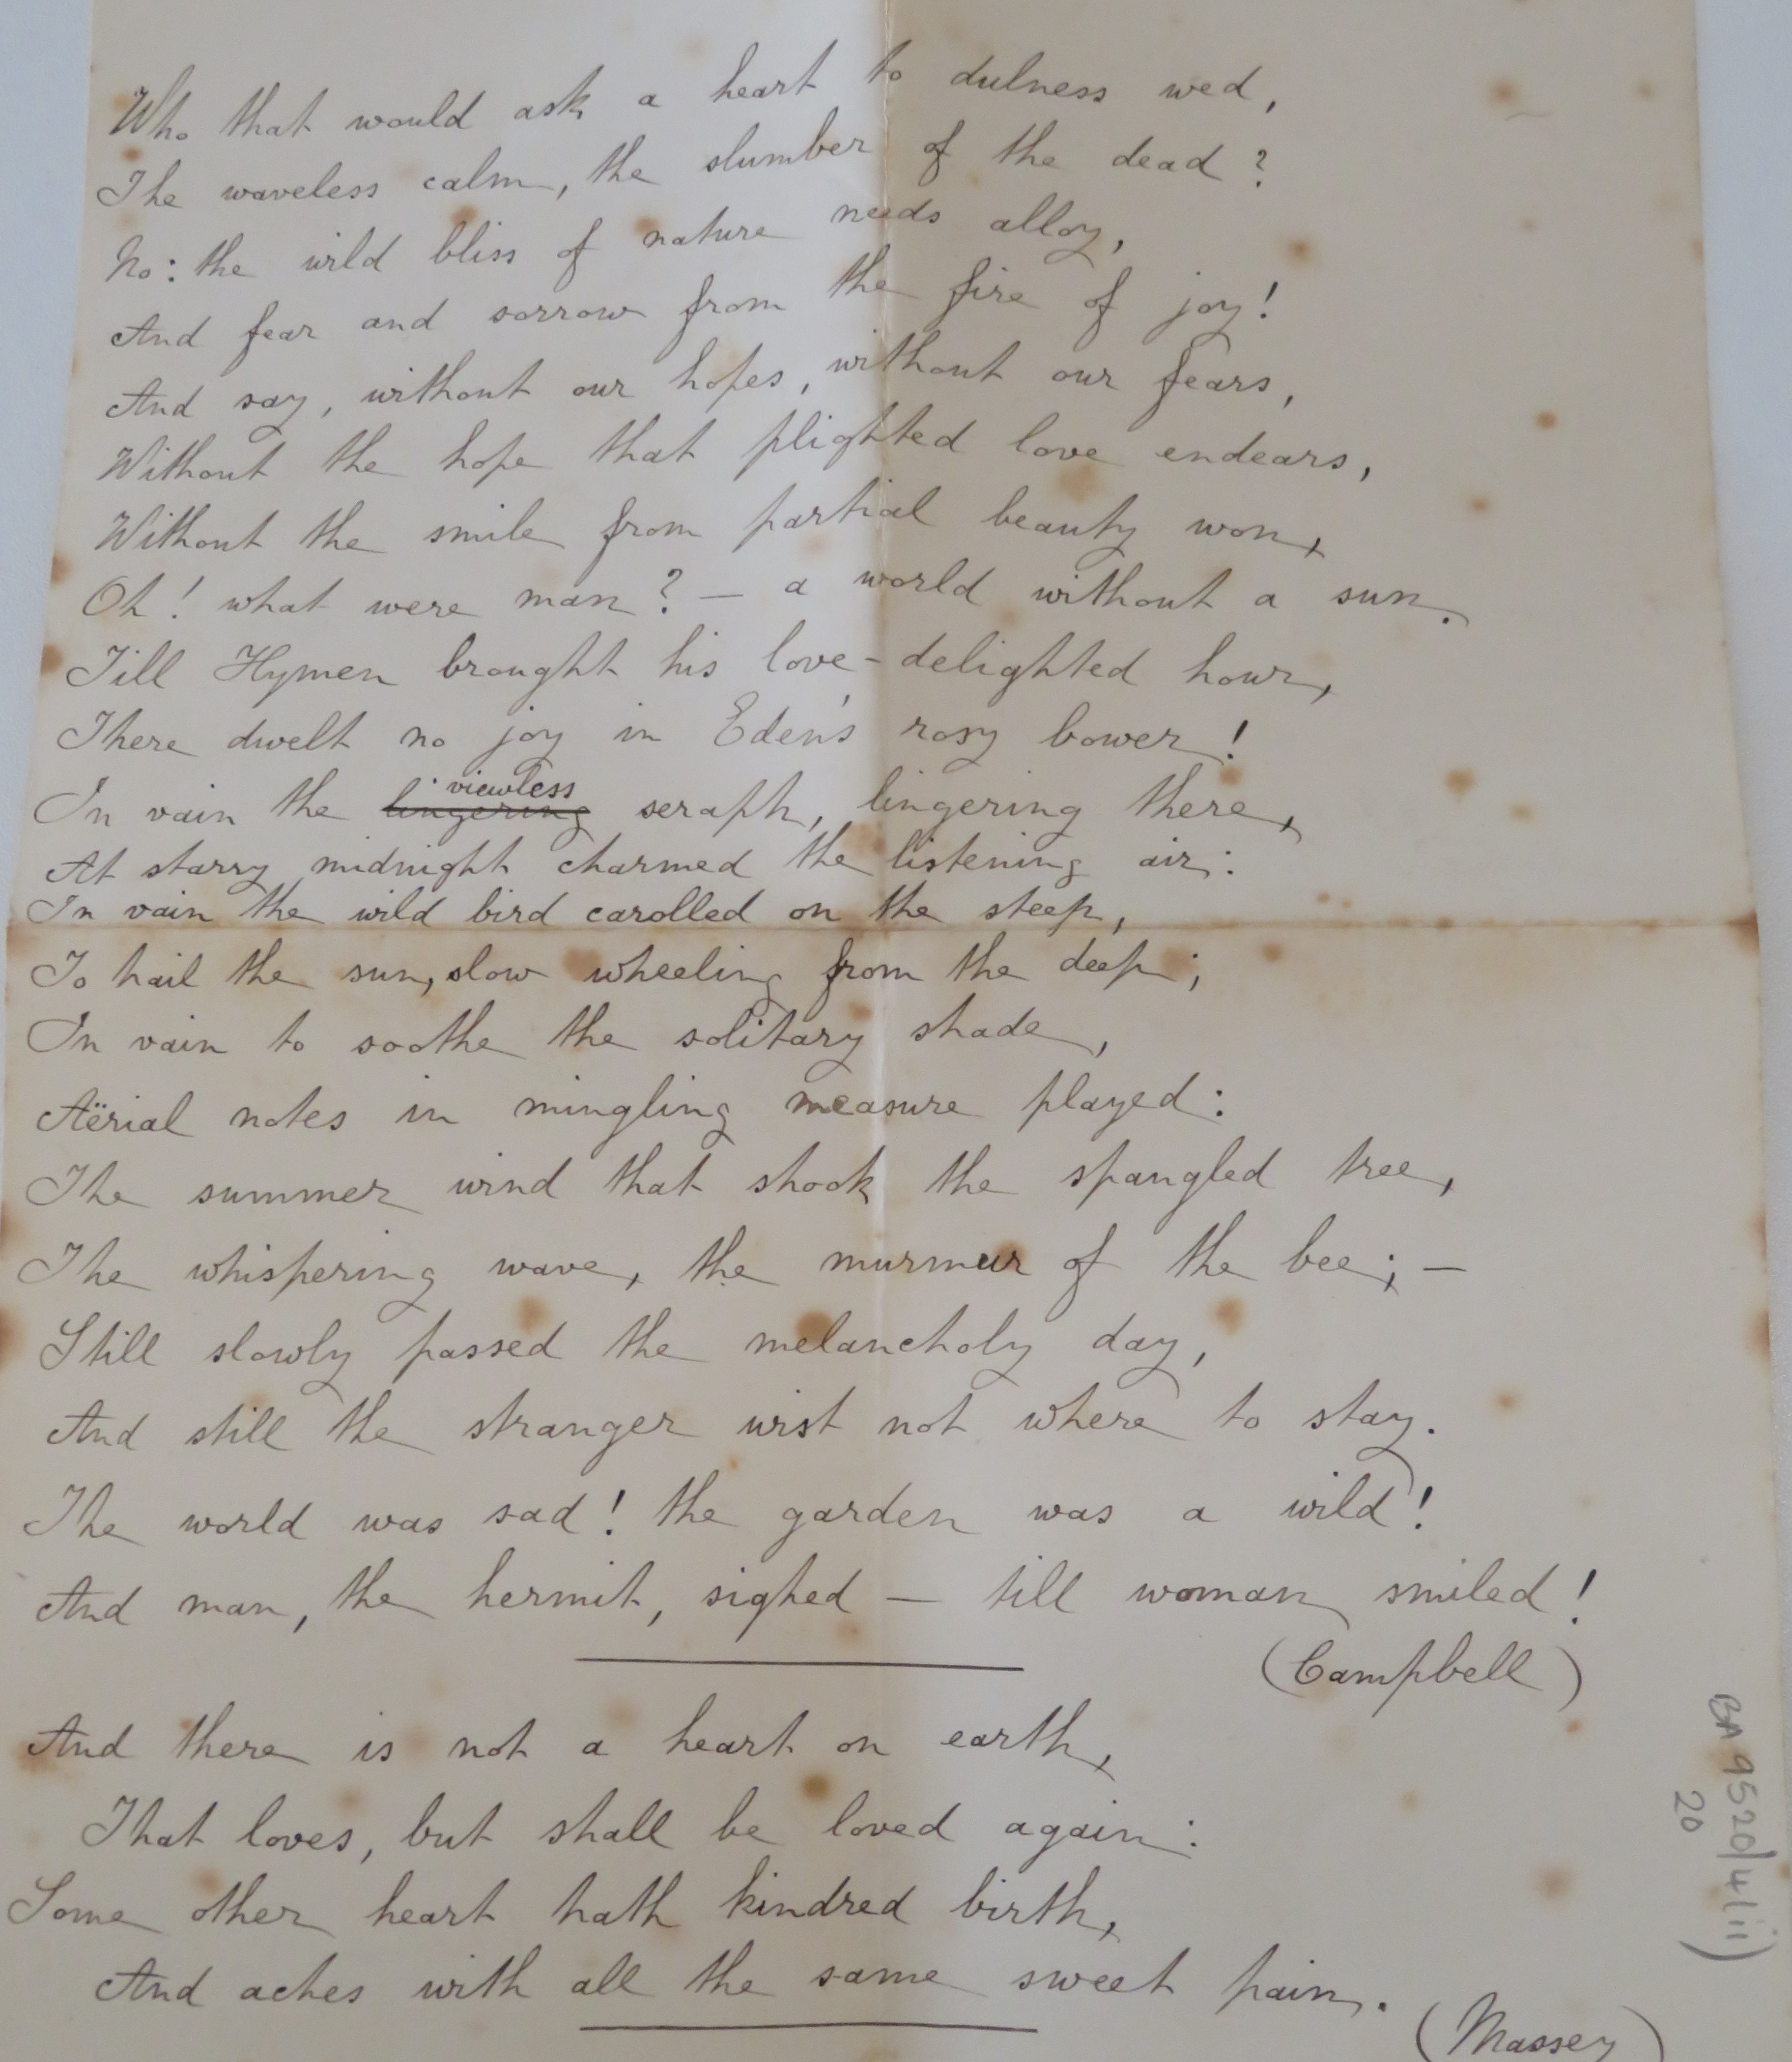 Who that would ask a heart to dulness wed,
The waveless calm, the slumber of the dead?
No: the wild bliss of nature needs alloy,
And fear and sorrow from the fire of joy!
And say, without our hopes, without our fears,
Without the hope that plighted love endears,
Without the smile from partial beauty won,
Oh! what were man? — a world without a sun.
Till Hymen brought his love-delighted hour,
There dwelt no joy in Eden's rosy bower!
viewless
In vain the lingering seraph, lingering there,
At starry midnight charmed the listening air:
In vain the wild bird carolled on the steep,
To hail the sun, slow wheeling from the deep;
In vain to soothe the solitary shade,
Aërial notes in mingling measure played:
The summer wind that shook the spangled tree,
The whispering wave, the murmur of the bee; —
Still slowly passed the melancholy day,
And still the stranger wist not where to stay.
The world was sad! the garden was a wild!
And man, the hermit, sighed — till woman smiled!
(Campbell)
And there is not a heart on earth,
That loves, but shall be loved again:
Some other heart hath kindred birth,
And aches with all the same sweet pain.
(Massey)
BA 9520/4(ii)
20